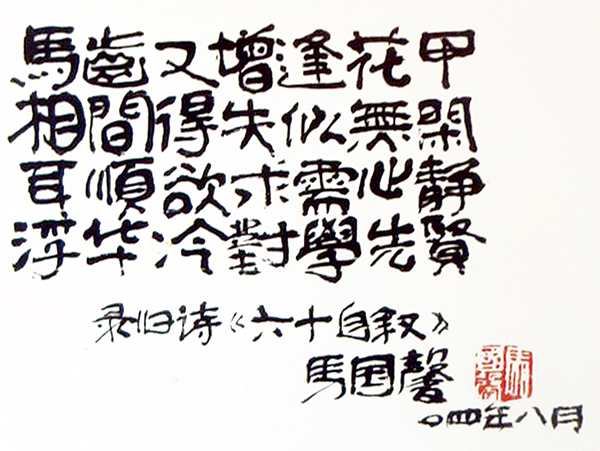 馬齒又增逢花甲
相間得失似無閑
耳順欲求需心靜
浮华冷對學先賢
录旧诗《六十自叙》
馬国馨
馬國馨
〇四年八月